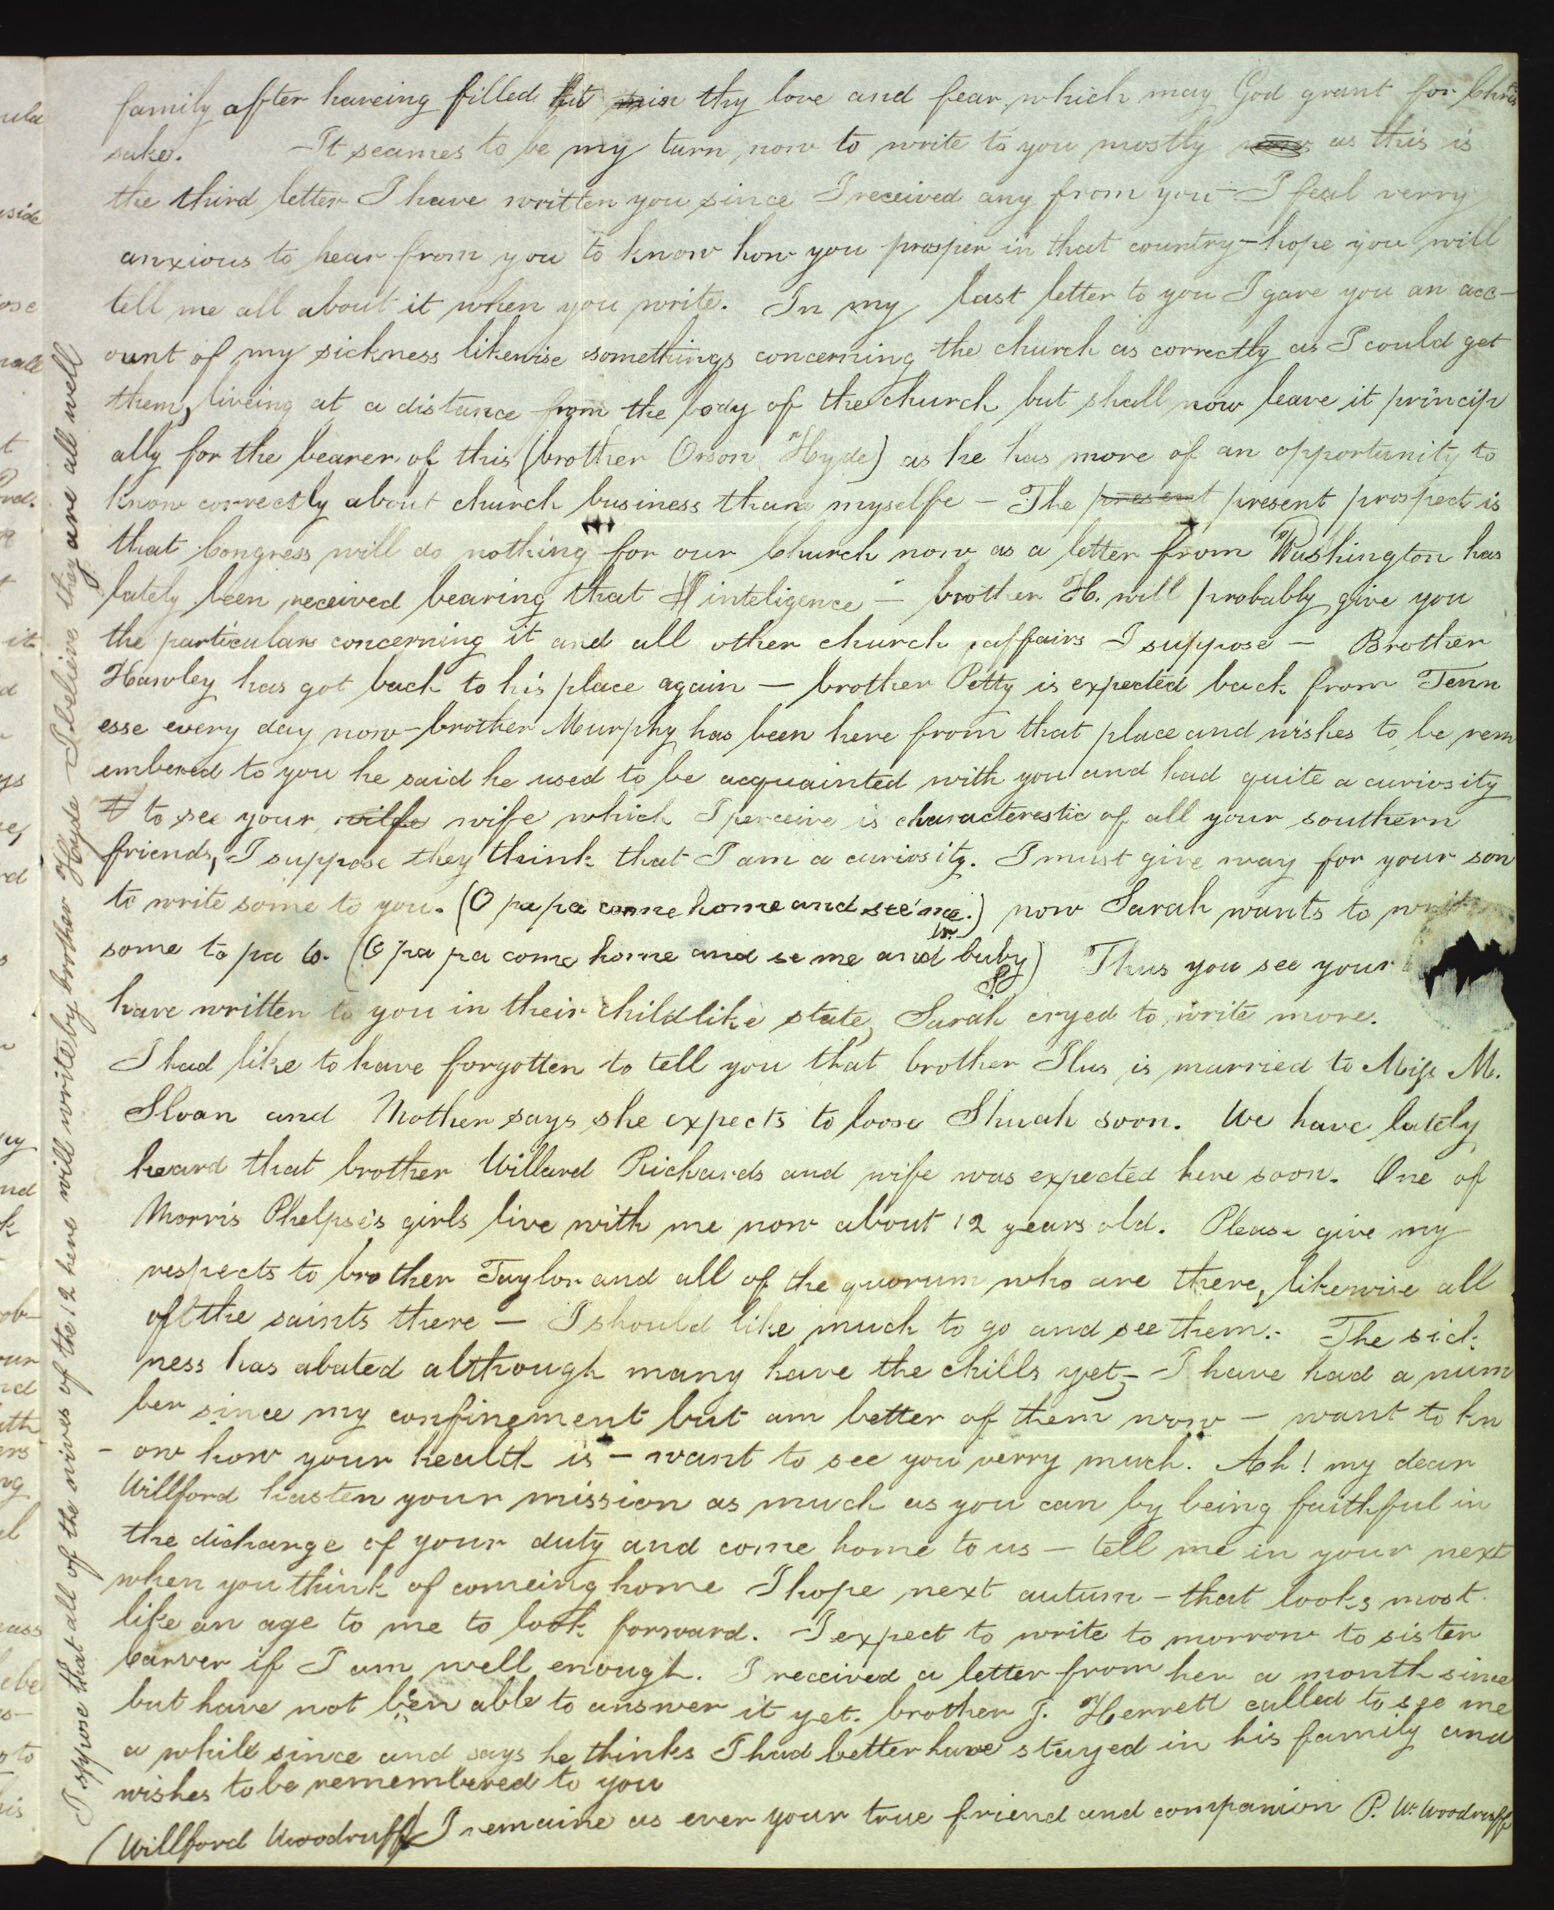 family after haveing filled hit in thy love and fear which may God grant for Chris
sake. It seames to be my turn now to write to you mostly as this is
the third letter I have written you since I received any from you - I feal verry
anxious to hear from you to know how you prosper in that country - hope you will
tell me all about it when you write. In my last letter to you I gave you an acc-
ount of my sickness likewise somethings concerning the church as correctly as I could get
them, liveing at a distance from the body of the church but shall now leave it princip
ally for the bearer of this (brother Orson Hyde) as he has more of an opportunity to
know correctly about church business than myselfe - The present present prospect is
that Congress will do nothing for our Church now as a letter from Washington has
lately been received bearing that inteligence - brother H. will probably give you
the particulars concerning it and all other church affairs I suppose - Brother
Hawley has got back to his place again - brother Petty is expected back from Tenn
esse every day now - brother Murphy has been here from that place and wishes to be rem
embered to you he said he used to be acquainted with you and had quite a curiosity
to see your wife which I perceive is characterestic of all your southern
friends, I suppose they think that I am a curiosity. I must give way for your son
to write some to you. (O pa pa come home and see me.) now Sarah wants to write
some to pa to. (O pa pa come home and se me and buby) Thus you see your
have written to you in their childlike state, Sarah cryed to write more.
I had like to have forgotten to tell you that brother Ilus is married to Miss M.
Sloan and Mother says she expects to loose Shuah soon. We have lately
heard that brother Willard Richards and wife was expected here soon. One of
Morris Phelps's girls live with me now about 12 years old. Please give my
respects to brother Taylor and all of the quorum who are there, likewise all
of the saints there - I should like much to go and see them. The sick
ness has abated although many have the chills yet - I have had a num
ber since my confinement but am better of them now - want to kn
- ow how your health is - want to see you verry much. Ah! my dear
Willford hasten your mission as much as you can by being faithful in
the discharge of your duty and come home to us - tell me in your next
when you think of comeing home I hope next autum - that looks most
like an age to me to look forward. I expect to write to morrow to sister
Carver if I am well enough. I received a letter from her a month since
but have not ben able to answer it yet. brother J. Herrett called to see me
a while since and says he thinks I had better have stayed in his family and
wishes to be remembered to you
(Willford Woodruff) I remaine as ever your true friend and companion P. W. Woodruff
I sppose that all of the wives of the 12 here will write by brother Hyde I believe they are all well